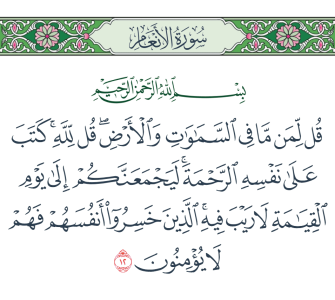 سُورَةُ الأَنْعَامِ
بِسْمِ ٱللَّهِ ٱلرَّحْمَٰنِ ٱلرَّحِيمِ
قُل لِّمَن مَّا فِى ٱلسَّمَـٰوَٰتِ وَٱلْأَرْضِ ۖ قُل لِّلَّهِ ۚ كَتَبَ
عَلَىٰ نَفْسِهِ ٱلرَّحْمَةَ ۚ لَيَجْمَعَنَّكُمْ إِلَىٰ يَوْمِ
ٱلْقِيَـٰمَةِ لَا رَيْبَ فِيهِ ۚ ٱلَّذِينَ خَسِرُوٓا۟ أَنفُسَهُمْ فَهُمْ
لَا يُؤْمِنُونَ ١٢